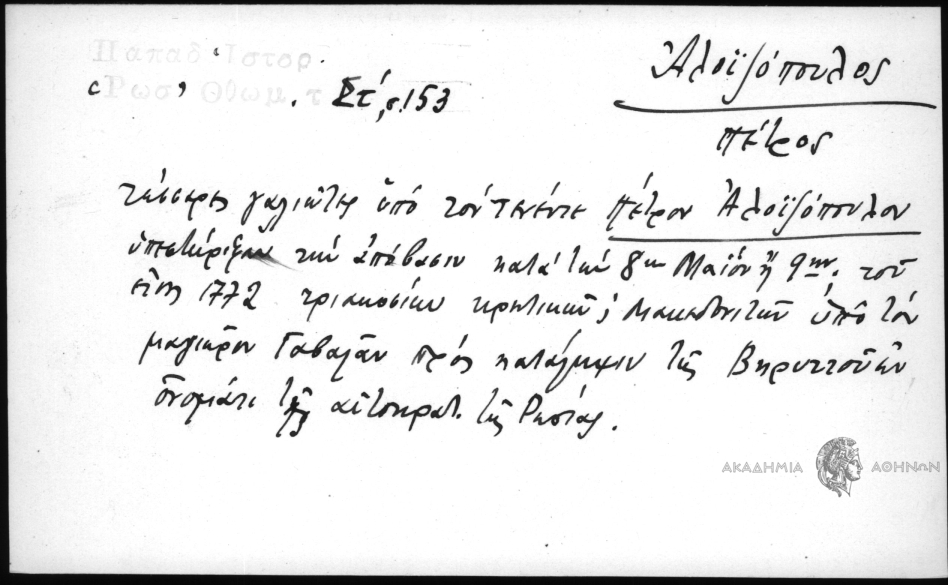 Παπαδ Ιστορ
Ρωσ Οθωμ τ. Στ΄, σ. 153
Ἀλοϊζόπουλος
Πέτρος
τέσσερες γαλιῶτες ὑπό τόν τενέντε Πέτρον Ἀλοϊζόπουλον
ὑπεστήριξαν τήν ἀπόβασιν κατά τήν 8ην Μαΐου ἤ 9ην, τοῦ
ἔτους 1772 τριακοσίων κρητικῶν, Μακεδονιτῶν ὑπό τόν
μαγιῶρον Γαβαλᾶν πρός κατάληψιν τῆς Βηρυττοῦ ἐν
ὀνόματι τῆς αὐτοκρατ. τῆς Ρωσίας.
ΑΚΑΔΗΜΙΑ ΑΘΗΝΩΝ